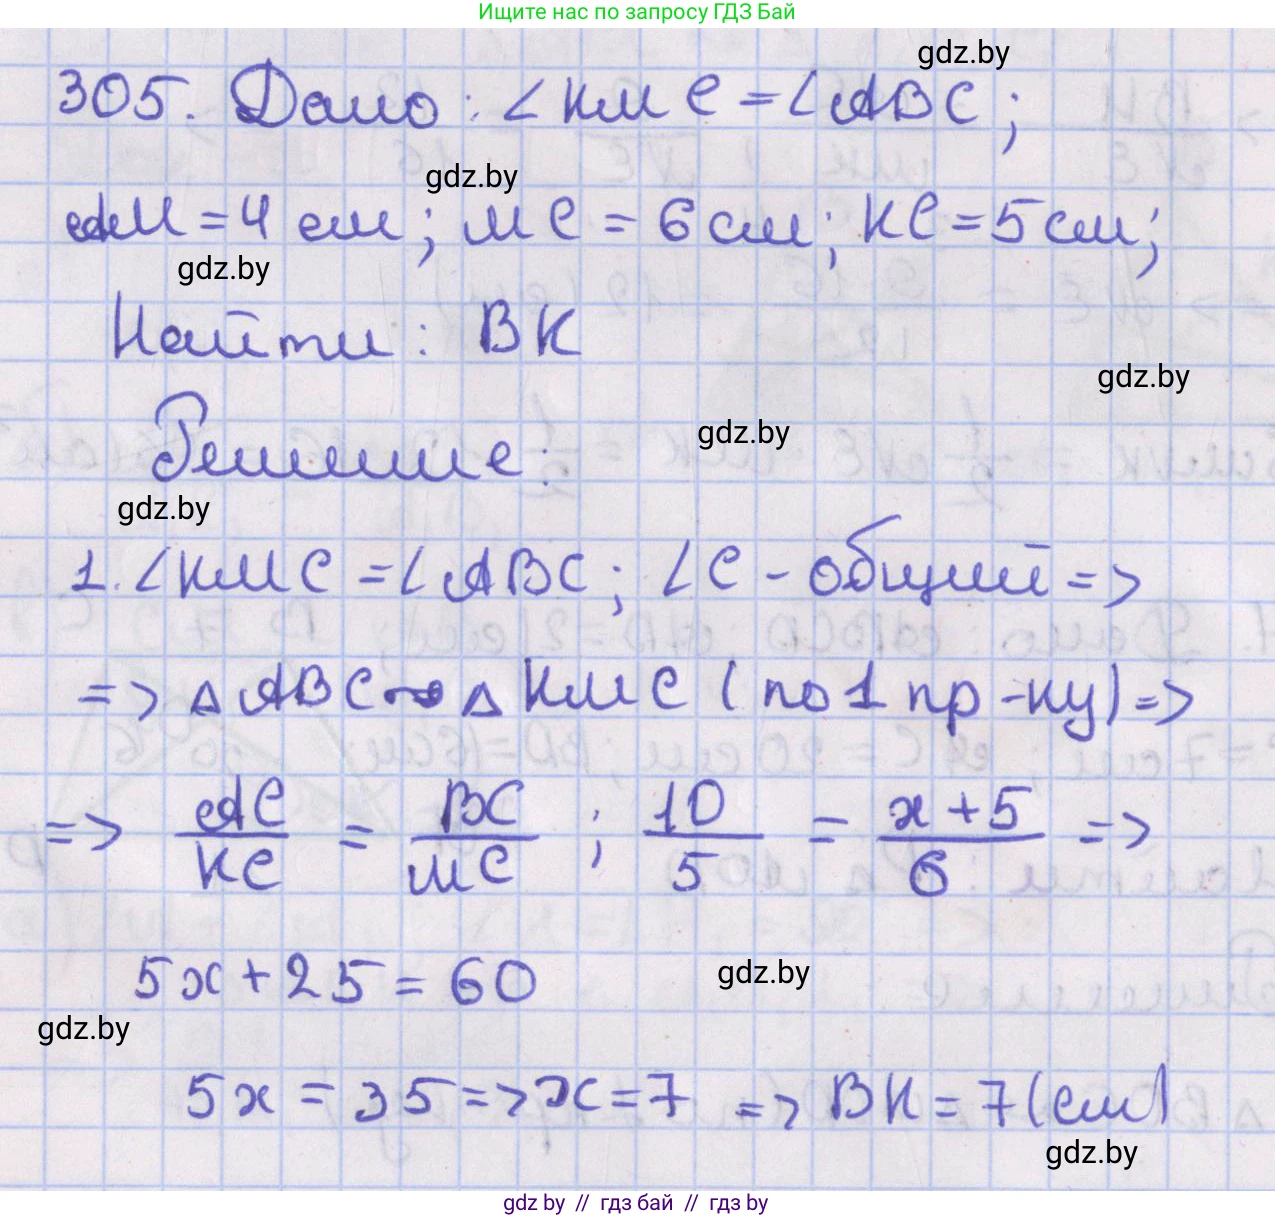 Ищите нас по запросу ГДЗ Бай
gdz.by
305. Дано: ∠KMC = ∠ABC;
gdz.by
AM = 4 см; MC = 6 см; KC = 5 см;
gdz.by
Найти: BK
gdz.by
gdz.by
Решение:
gdz.by
1. ∠KMC = ∠ABC; ∠C - общий =>
=> △ABC ~ △KMC (по 1 пр-ку) =>
=> AC/KC = BC/MC ; 10/5 = x+5/6 =>
5x + 25 = 60
gdz.by
gdz.by
5x = 35 => x = 7 => BK = 7 (см)
gdz.by
gdz by // гдз бай // гдз by